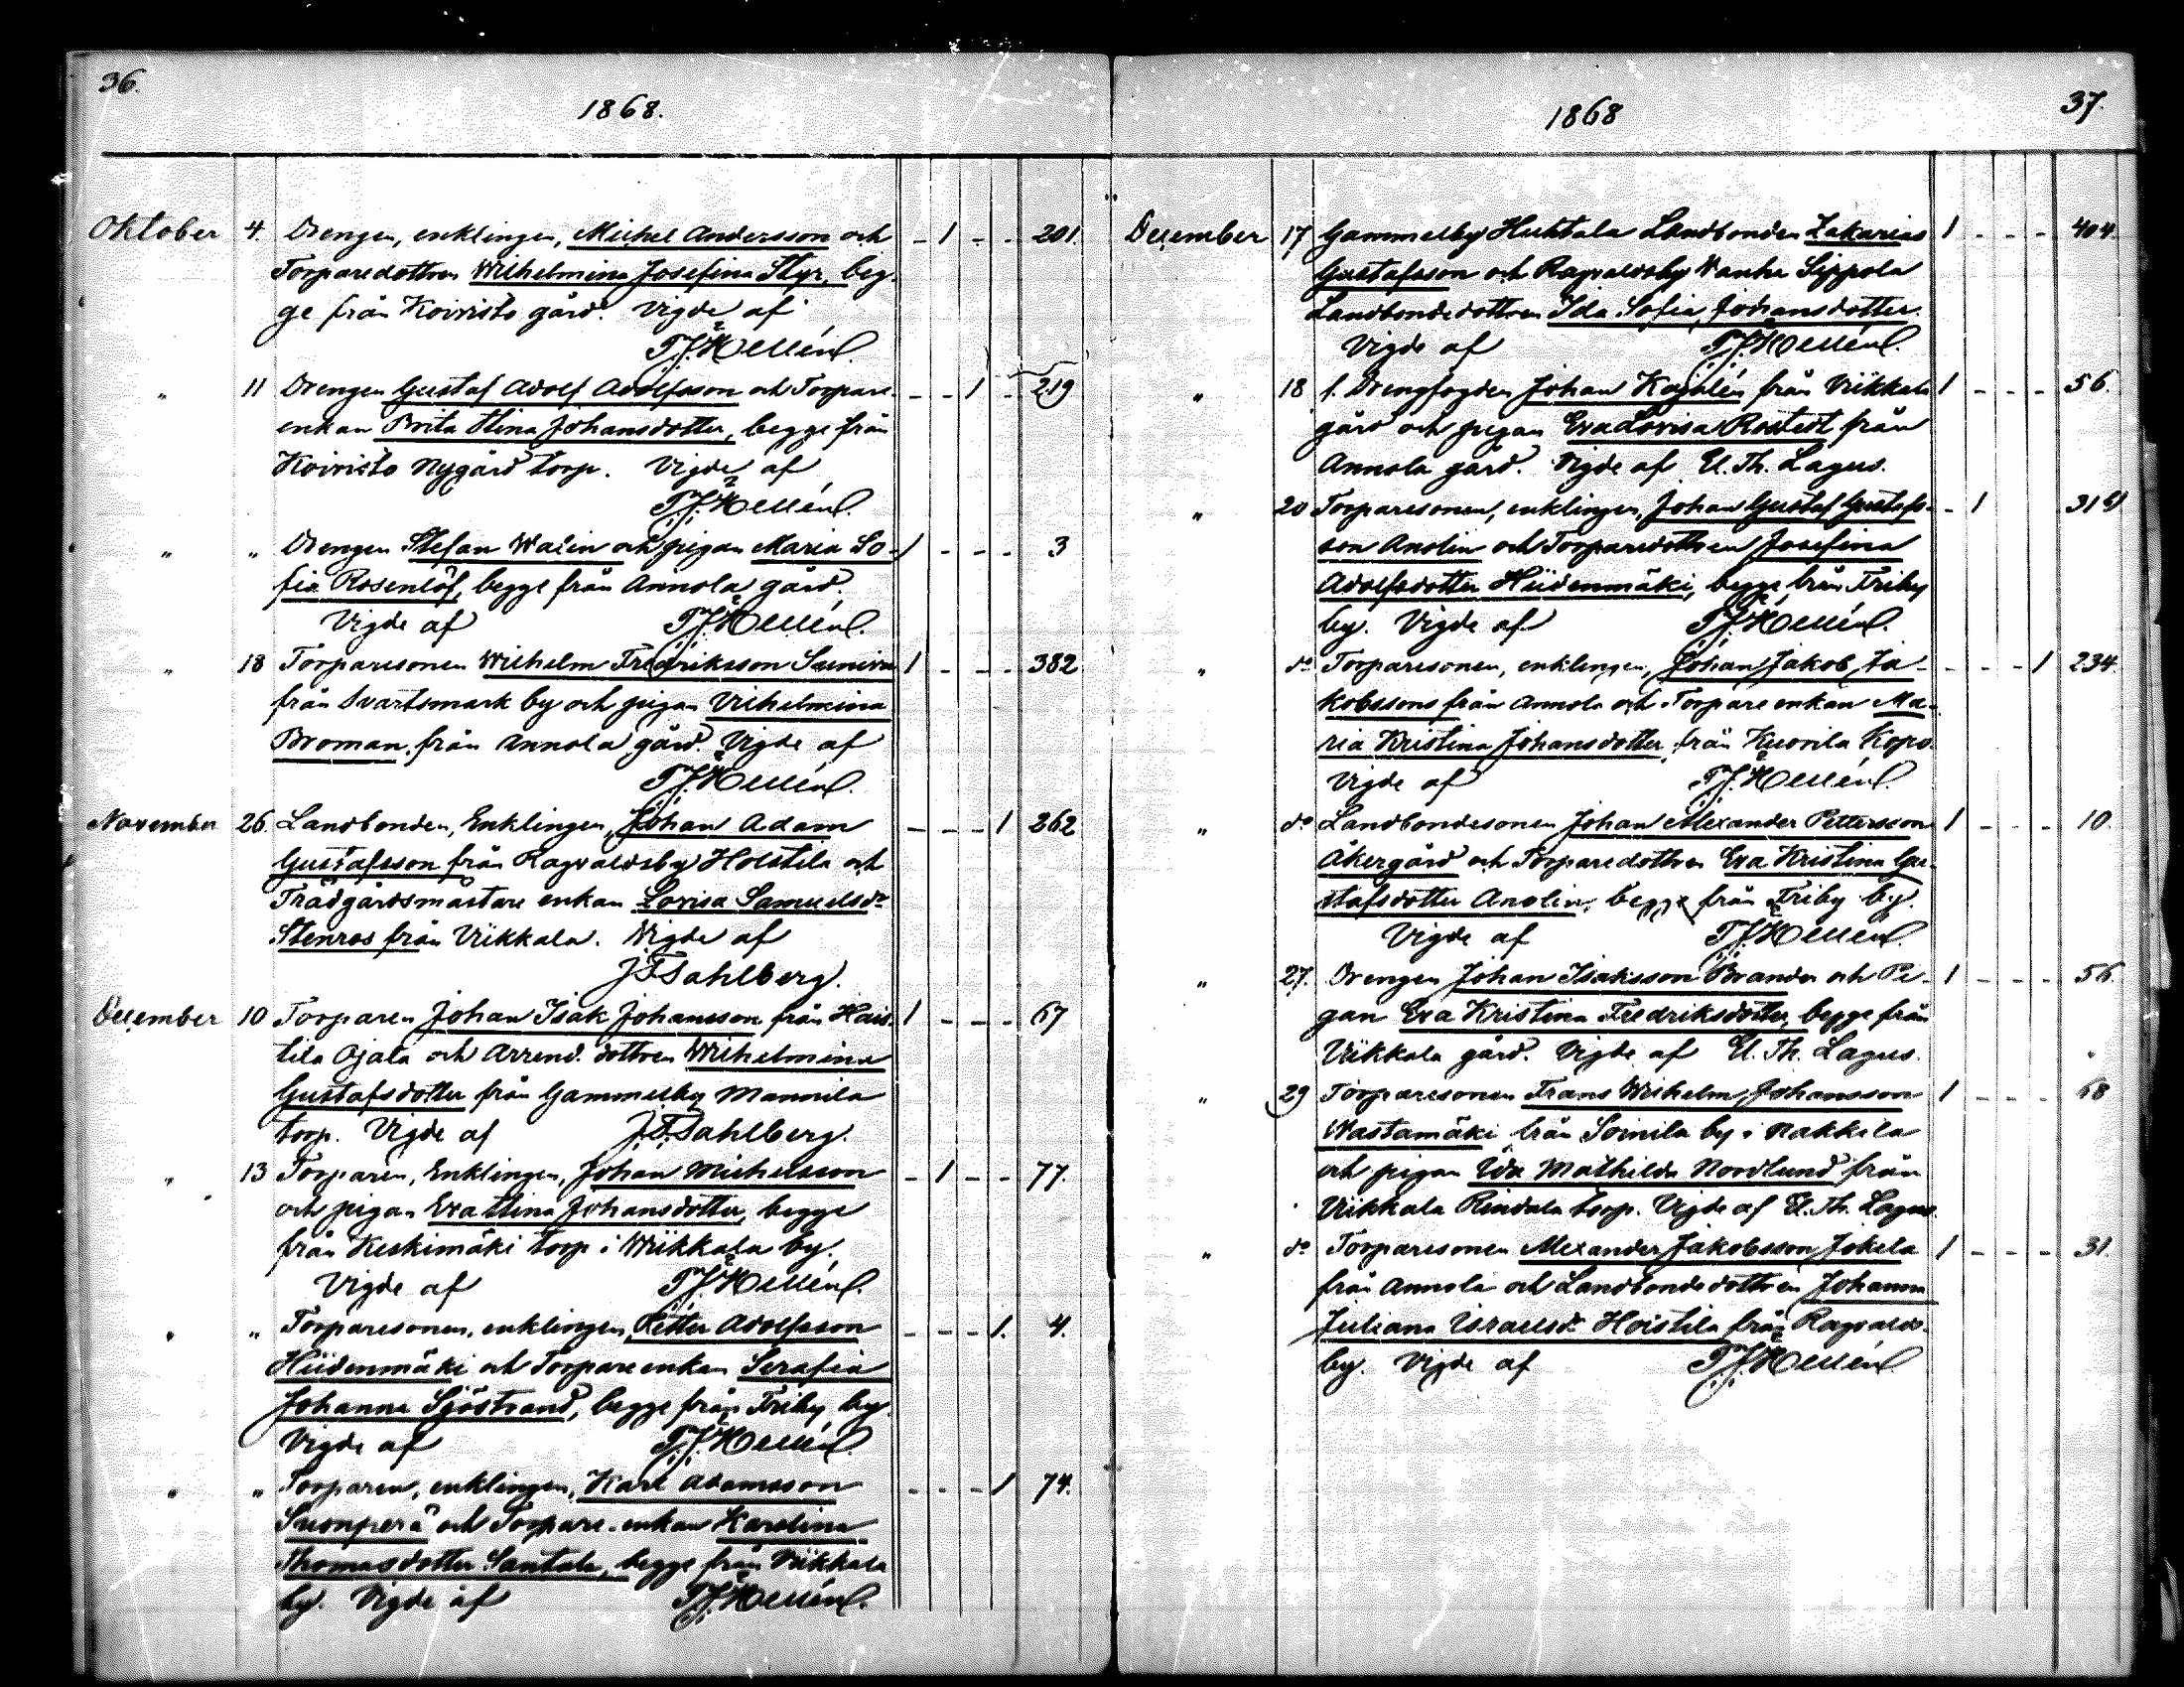 36.
1868.
Oktober 4. Drengen, enklingen, Michel Andersson och - 1 - - 201.
Torparedottren Wilhelmina Josefina Styr, beg-
ge från Koivisto gård. Vigde af
T.J. Hellén.
" 11 Drengen Gustaf Adolf Adolfsson och Torpare- - - 1 - 219
enkan Brita Stina Johansdotter, begge från
Koivisto Nygård torp. Vigde af
T.J. Hellén.
" " Drengen Stefan Walin och pigan Maria So- 1 - - - 3
fia Rosenlöf, begge från Annola gård.
Vigde af T.J. Hellén.
" 18 Torparesonen Wilhelm Fredriksson Suniva 1 - - - 382
från Svartsmark by och pigan Vilhelmina
Broman från Annola gård. Vigde af
T.J. Hellén.
November 26. Landbonden, Enklingen, Johan Adam - - - 1 262
Gustafsson från Ragvaldsby Holstila och
Trädgårdsmästare enkan Lovisa Samuelsdr
Stenros från Viikkala. Vigde af
J.F. Sahlberg.
December 10 Torparen Johan Isak Johansson från Hais- 1 - - - 67
tila Ojala och Arrend. dottren Wilhelmina
Gustafsdotter från Gammelby Mannila
torp. Vigde af J.F. Sahlberg.
" 13 Torparen, Enklingen, Johan Michelsson - 1 - - 77.
och pigan Eva Stina Johansdotter, begge
från Keskimäki torp i Wiikkala by.
Vigde af T.J. Hellén.
" " Torparesonen, enklingen, Petter Adolfsson - - - 1. 4.
Hiidenmäki och Torpareenkan Serafia
Johanna Sjöstrand, begge från Friby by.
Vigde af T.J. Hellén.
" " Torparen, enklingen, Karl Adamsson - - - 1 74.
Suonperä och Torpare-enkan Karolina
Thomasdotter Santala, begge från Viikkala
by. Vigde af T.J. Hellén.
37.
1868
December 17 Gammelby Huhtala Landbonden Zakarias 1 - - - 404.
Gustafsson och Ragvaldsby Wanha Sippola
Landbondedottren Ida Sofia Johansdotter.
Vigde af T.J. Hellén.
" 18 f. Drengfogden Johan Kajalén från Viikkala 1 - - - 56.
gård och pigan Eva Lovisa Rostedt från
Annola gård. Vigde af El. Th. Lagus.
" 20 Torparesonen, enklingen, Johan Gustaf Gustafs- - 1
son Anolin och Torparedottren Josefina
Adolfsdotter Hiidenmäki, begge från Friby
by. Vigde af T.J. Hellén.
" do Torparesonen, enklingen, Johan Jakob Ja- - - - 1 234.
kobssons från Annola och Torpare enkan Ma-
ria Kristina Johansdotter, från Kuorila Kopo.
Vigde af T.J. Hellén.
" do Landbondesonen Johan Alexander Pettersson 1 - - - 10.
Åkergård och Torparedottren Eva Kristina Gu-
stafsdotter Anolin, begge från Friby by.
Vigde af T.J. Hellén.
" 27. Drengen Johan Isaksson Brander och Pi- 1 - - - 56.
gan Eva Kristina Fredriksdotter, begge från
Viikkala gård. Vigde af El. Th. Lagus.
" 29 Torparesonen Frans Wilhelm Johansson 1 - - - 68
Wastamäki från Soinila by i Nakkila
och pigan Ida Mathilda Nordlund från
Viikkala Rindala torp. Vigde af El. Th. Lagus.
" do Torparesonen Alexander Jakobsson Jokela 1 - - - 31.
från Annola och Landbondedottren Johanna
Juliana Israelsdr Hoistila från Ragvalds-
by. Vigde af T.J. Hellén.